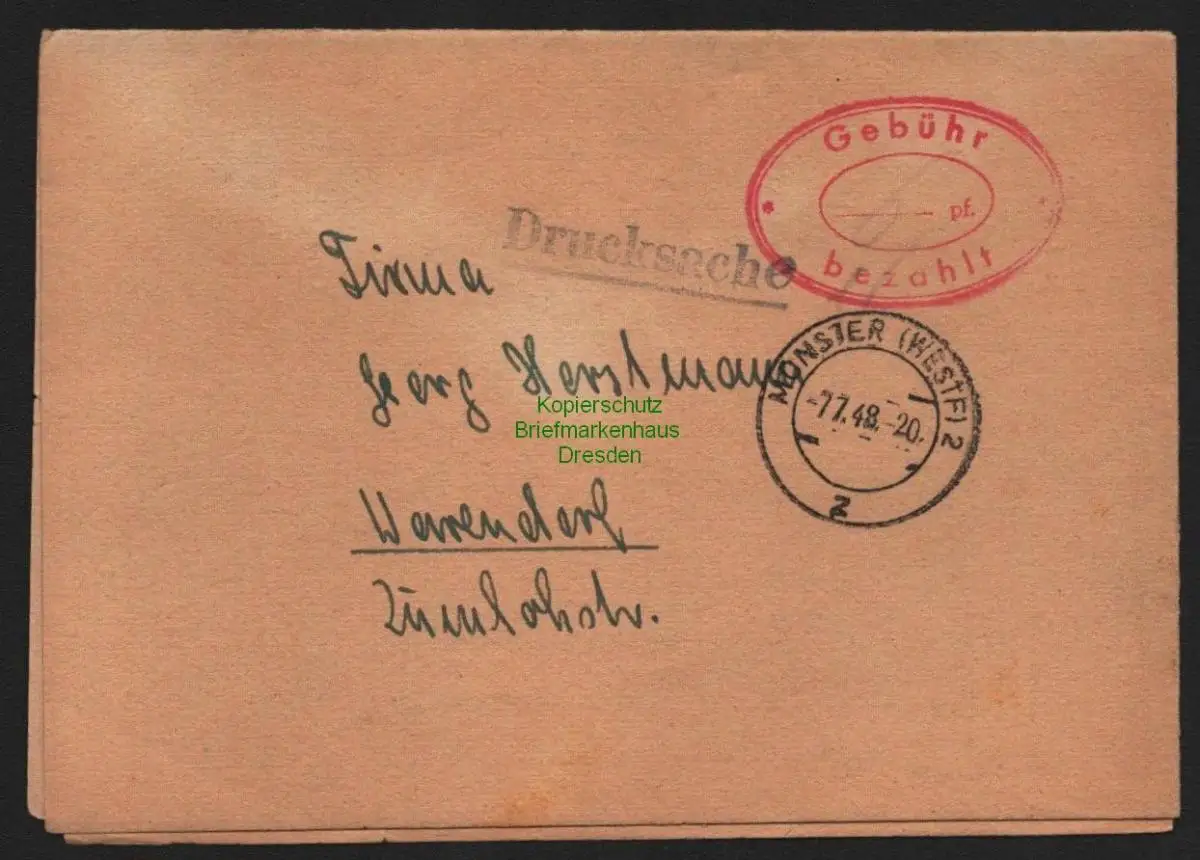 Gebühr
pf.
bezahlt
Drucksache
Firma
Georg Horstmann
Kopierschutz
Briefmarkenhaus
Dresden
MÜNSTER (WESTF) 2
-7.7.48.-20.
z
Warendorf
Zumlohstr.